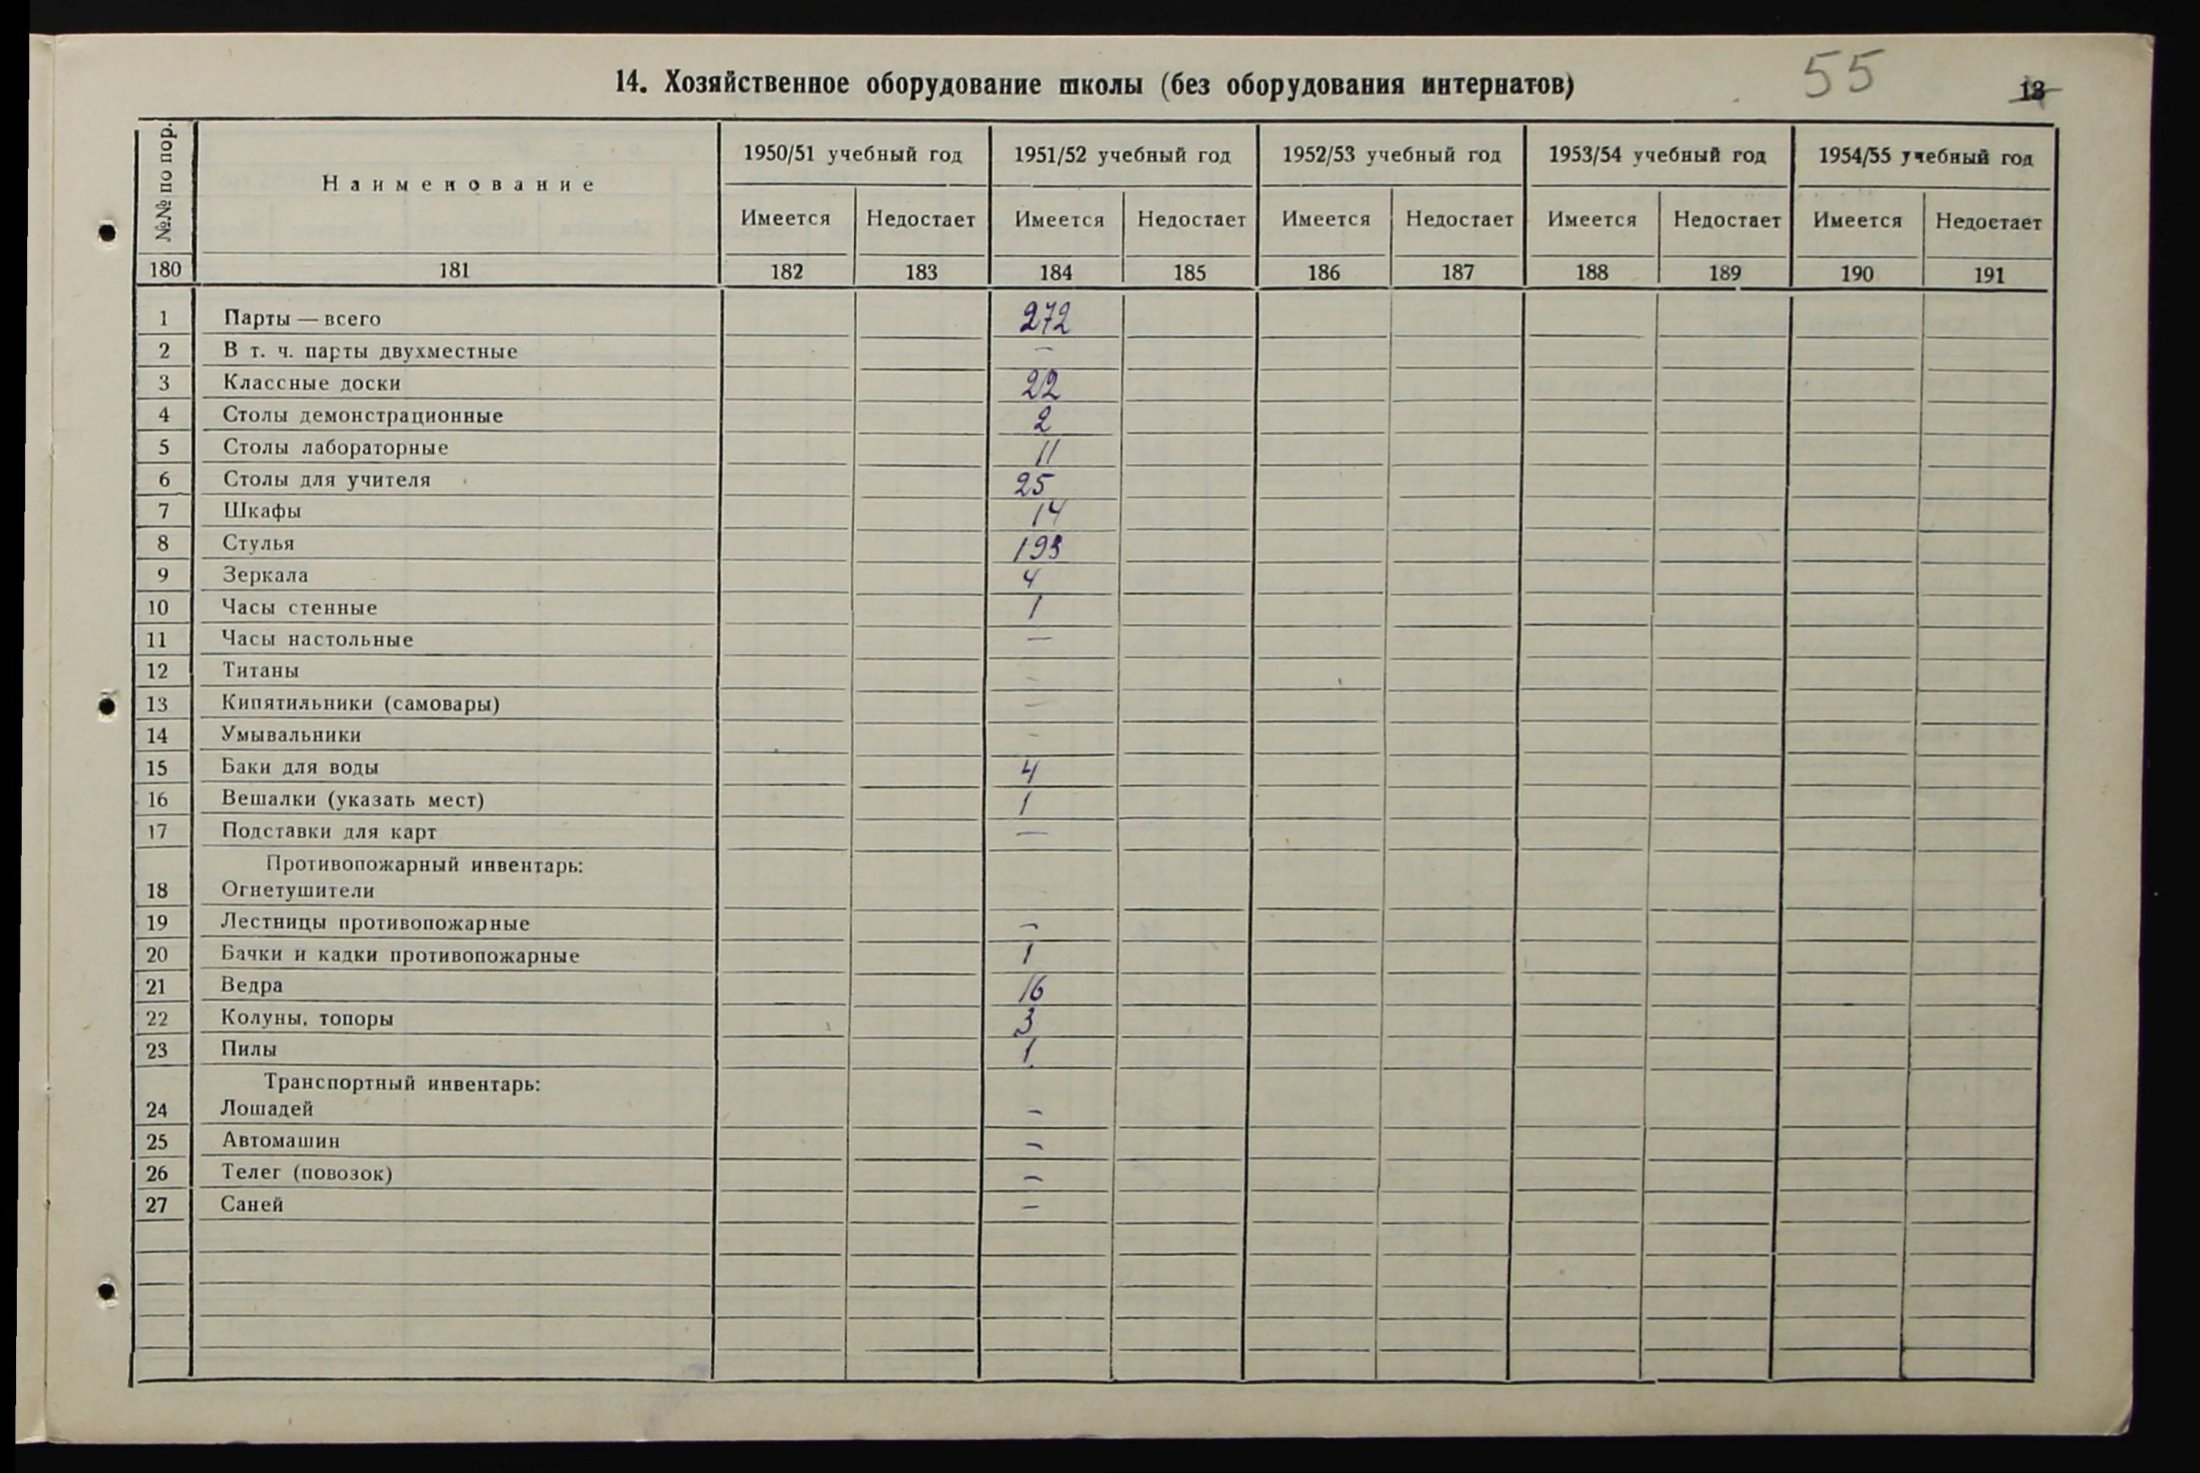 55
13
14. Хозяйственное оборудование школы (без оборудования интернатов)
№№ по пор. Наименование 1950/51 учебный год 1951/52 учебный год 1952/53 учебный год 1953/54 учебный год 1954/55 учебный год
Имеется Недостает Имеется Недостает Имеется Недостает Имеется Недостает Имеется Недостает
180 181 182 183 184 185 186 187 188 189 190 191
1 Парты — всего 272
2 В т. ч. парты двухместные —
3 Классные доски 22
4 Столы демонстрационные 2
5 Столы лабораторные 11
6 Столы для учителя 25
7 Шкафы 14
8 Стулья 193
9 Зеркала 4
10 Часы стенные 1
11 Часы настольные —
12 Титаны -
13 Кипятильники (самовары) —
14 Умывальники -
15 Баки для воды 4
16 Вешалки (указать мест) 1
17 Подставки для карт —
Противопожарный инвентарь:
18 Огнетушители -
19 Лестницы противопожарные —
20 Бачки и кадки противопожарные 1
21 Ведра 16
22 Колуны, топоры 3
23 Пилы 1.
Транспортный инвентарь:
24 Лошадей —
25 Автомашин —
26 Телег (повозок) —
27 Саней —